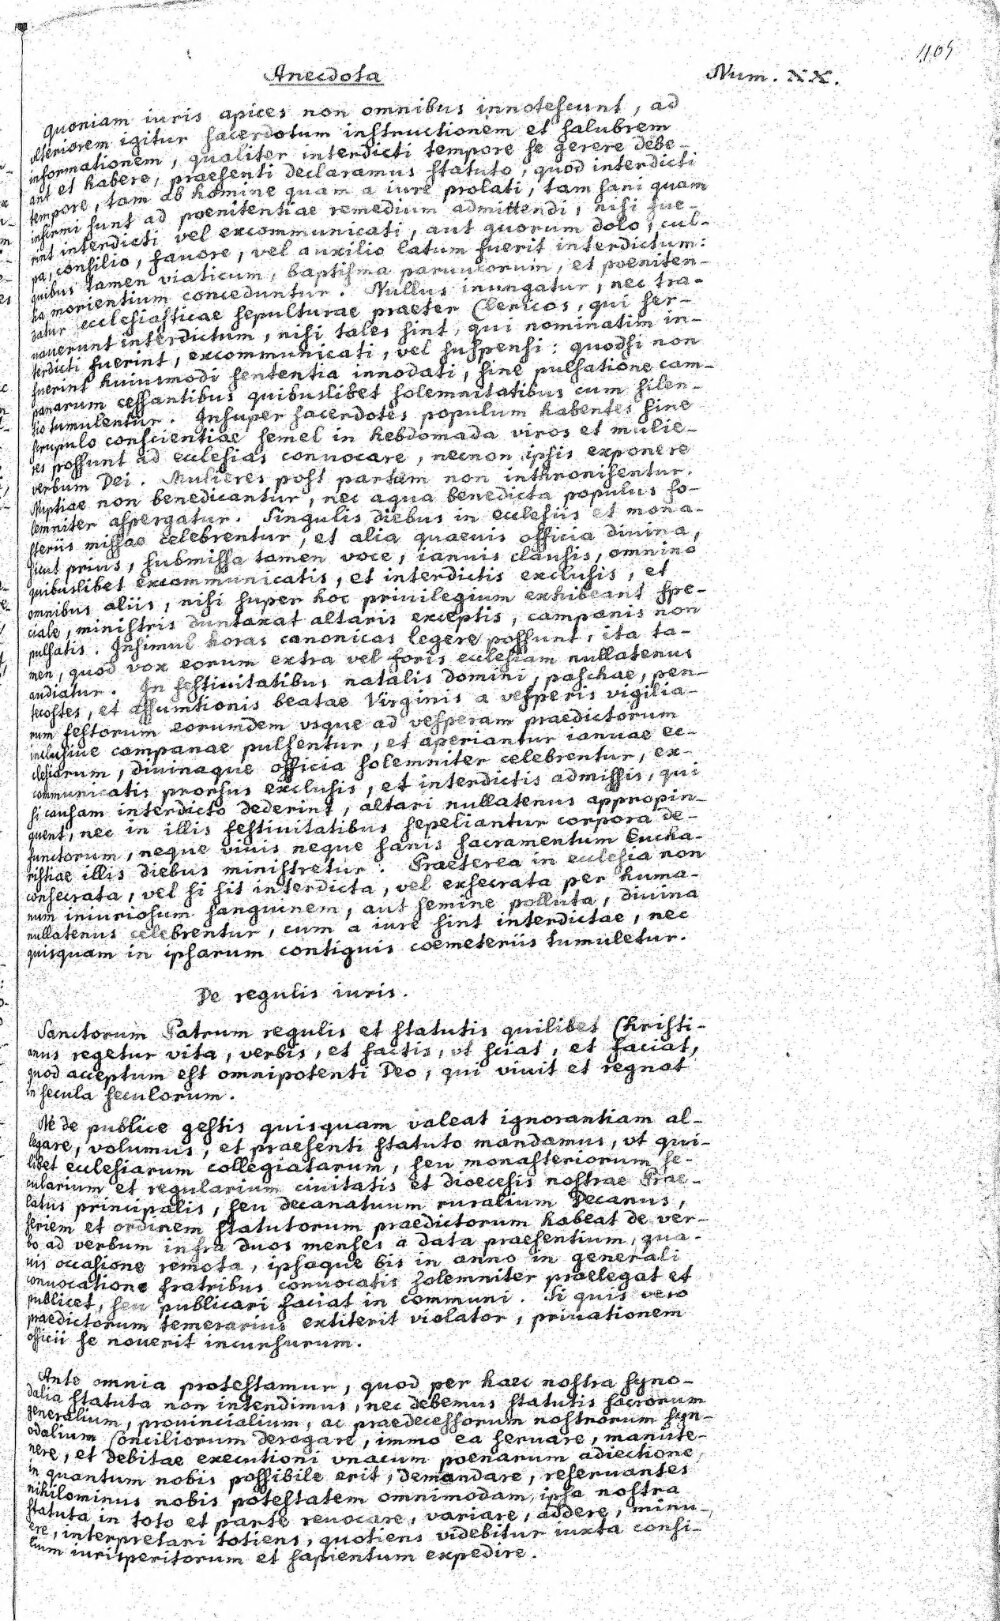 405
Anecdota Num. XX.
quoniam iuris apices non omnibus innotescunt, ad
ulteriorem igitur sacerdotum instructionem et salubrem
informationem, qualiter interdicti tempore se gerere debe-
ant et habere, praesenti declaramus statuto, quod interdicti
tempore, tam ab homine quam a iure prolati, tam sani quam
infirmi sunt ad poenitentiae remedium admittendi, nisi fue-
rint interdicti vel excommunicati, aut quorum dolo, cul-
pa, consilio, favore, vel auxilio latum fuerit interdictum:
quibus tamen viaticum, baptisma parvulorum, et poeniten-
tia morientium conceduntur. Nullus inungatur, nec tra-
datur ecclesiasticae sepulturae praeter Clericos, qui ser-
vaverunt interdictum, nisi tales sint, qui nominatim in-
terdicti fuerint, excommunicati, vel suspensi: quodsi non
fuerint huiusmodi sententia innodati, sine pulsatione cam-
panarum cessantibus quibuslibet solemnitatibus cum silen-
tio tumulentur. Insuper sacerdotes populum habentes sine
scrupulo conscientiae semel in hebdomada viros et mulie-
res possunt ad ecclesias convocare, necnon ipsis exponere
verbum Dei. Mulieres post partum non inthronisentur.
Nuptiae non benedicantur, nec aqua benedicta populus so-
lemniter aspergatur. Singulis diebus in ecclesiis et mona-
steriis missae celebrentur, et alia quaevis officia divina,
sicut prius, submissa tamen voce, ianuis clausis, omnino
quibuslibet excommunicatis, et interdictis exclusis, et
omnibus aliis, nisi super hoc privilegium exhibeant spe-
ciale, ministris duntaxat altaris exceptis, campanis non
pulsatis. Insimul horas canonicas legere possunt, ita ta-
men, quod vox eorum extra vel foris ecclesiam nullatenus
audiatur. In festivitatibus natalis domini, paschae, pen-
tecostes, et assumtionis beatae Virginis a vesperis vigilia-
rum festorum eorumdem usque ad vesperam praedictorum
inclusive campanae pulsentur, et aperiantur ianuae ec-
clesiarum, divinaque officia solemniter celebrentur, ex-
communicatis prorsus exclusis, et interdictis admissis, qui
si causam interdicto dederint, altari nullatenus appropin-
quent, nec in illis festivitatibus sepeliantur corpora de-
functorum, neque vivis neque sanis sacramentum Eucha-
ristiae illis diebus ministretur. Praeterea in ecclesia non
consecrata, vel si sit interdicta, vel exsecrata per huma-
num iniuriosum sanguinem, aut semine polluta, divina
nullatenus celebrentur, cum a iure sint interdictae, nec
quisquam in ipsarum contiguis coemeteriis tumuletur.
De regulis iuris.
Sanctorum Patrum regulis et statutis quilibet Christi-
anus regetur vita, verbis, et factis, ut sciat, et faciat,
quod acceptum est omnipotenti Deo, qui vivit et regnat
in secula seculorum.
Ne de publice gestis quisquam valeat ignorantiam al-
legare, volumus, et praesenti statuto mandamus, ut qui-
libet ecclesiarum collegiatarum, seu monasteriorum se-
cularium et regularium civitatis et dioecesis nostrae Prae-
latus principalis, seu decanatuum ruralium Decanus,
seriem et ordinem statutorum praedictorum habeat de ver-
bo ad verbum infra duos menses a data praesentium, qua-
vis occasione remota, ipsaque bis in anno in generali
convocatione fratribus convocatis solemniter praelegat et
publicet, seu publicari faciat in communi. Si quis vero
praedictorum temerarius extiterit violator, privationem
officii se noverit incursurum.
Ante omnia protestamur, quod per haec nostra syno-
dalia statuta non intendimus, nec debemus statutis sacrorum
generalium, provincialium, ac praedecessorum nostrorum syn-
odalium Conciliorum derogare, immo ea servare, manute-
nere, et debitae executioni unacum poenarum adiectione,
in quantum nobis possibile erit, demandare, reservantes
nihilominus nobis potestatem omnimodam, ipsa nostra
statuta in toto et parte revocare, variare, addere, minu-
ere, interpretari totiens, quotiens videbitur iuxta consi-
lium iurisperitorum et sapientum expedire.